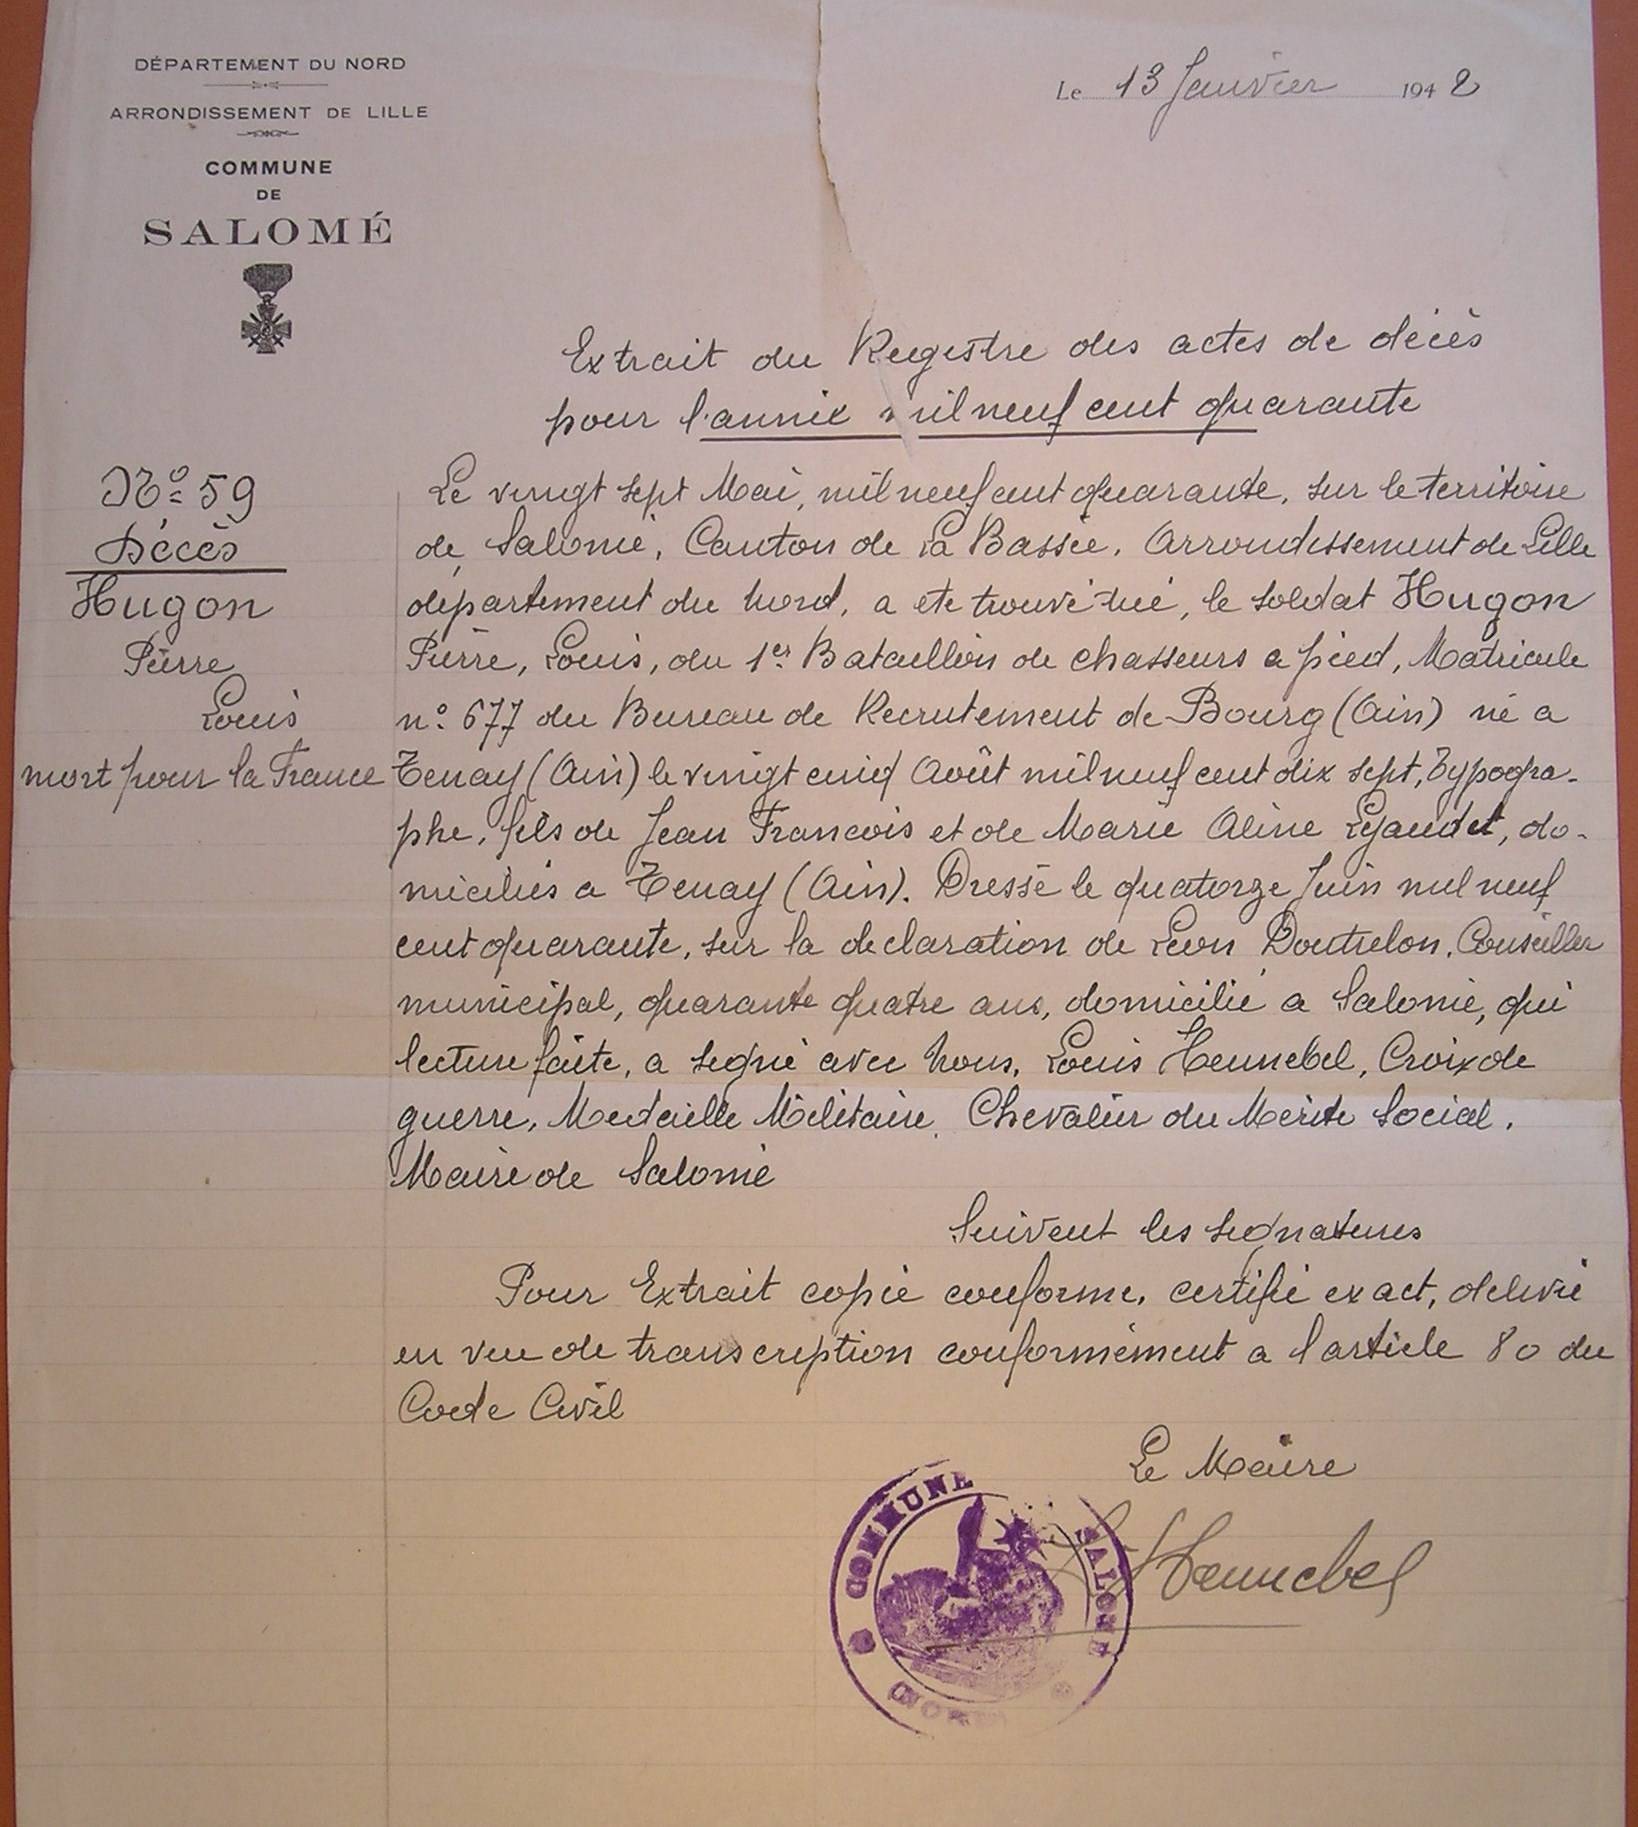 DÉPARTEMENT DU NORD
ARRONDISSEMENT DE LILLE
COMMUNE
DE
SALOMÉ
Le 13 Janvier 1942
Extrait du Registre des actes de décès
pour l'année mil neuf cent quarante
N° 59
Décès
Hugon
Pierre
Louis
mort pour la France
Le vingt sept Mai, mil neuf cent quarante, sur le territoire
de Salomé, Canton de La Bassée, Arrondissement de Lille
département du Nord, a été trouvé tué, le soldat Hugon
Pierre, Louis, du 1er Bataillon de chasseurs a pied, Matricule
n° 677 du Bureau de Recrutement de Bourg (Ain) né a
Tenay (Ain) le vingt cinq Août mil neuf cent dix sept, Typogra-
phe, fils de Jean Francois et de Marie Aline Lyaudet, do-
miciliés a Tenay (Ain). Dressé le quatorze Juin mil neuf
cent quarante, sur la declaration de Léon Doutrelon, Conseiller
municipal, quarante quatre ans, domicilié a Salomé, qui
lecture faite, a signé avec Nous, Louis Hennebel, Croix de
guerre, Medaille Militaire, Chevalier du Mérite Social,
Maire de Salomé
Suivent les signatures
Pour Extrait copie conforme, certifié exact, délivré
en vue de transcription conformément a l'article 80 du
Code Civil
Le Maire
L. Hennebel
COMMUNE SALOMÉ
(NORD)